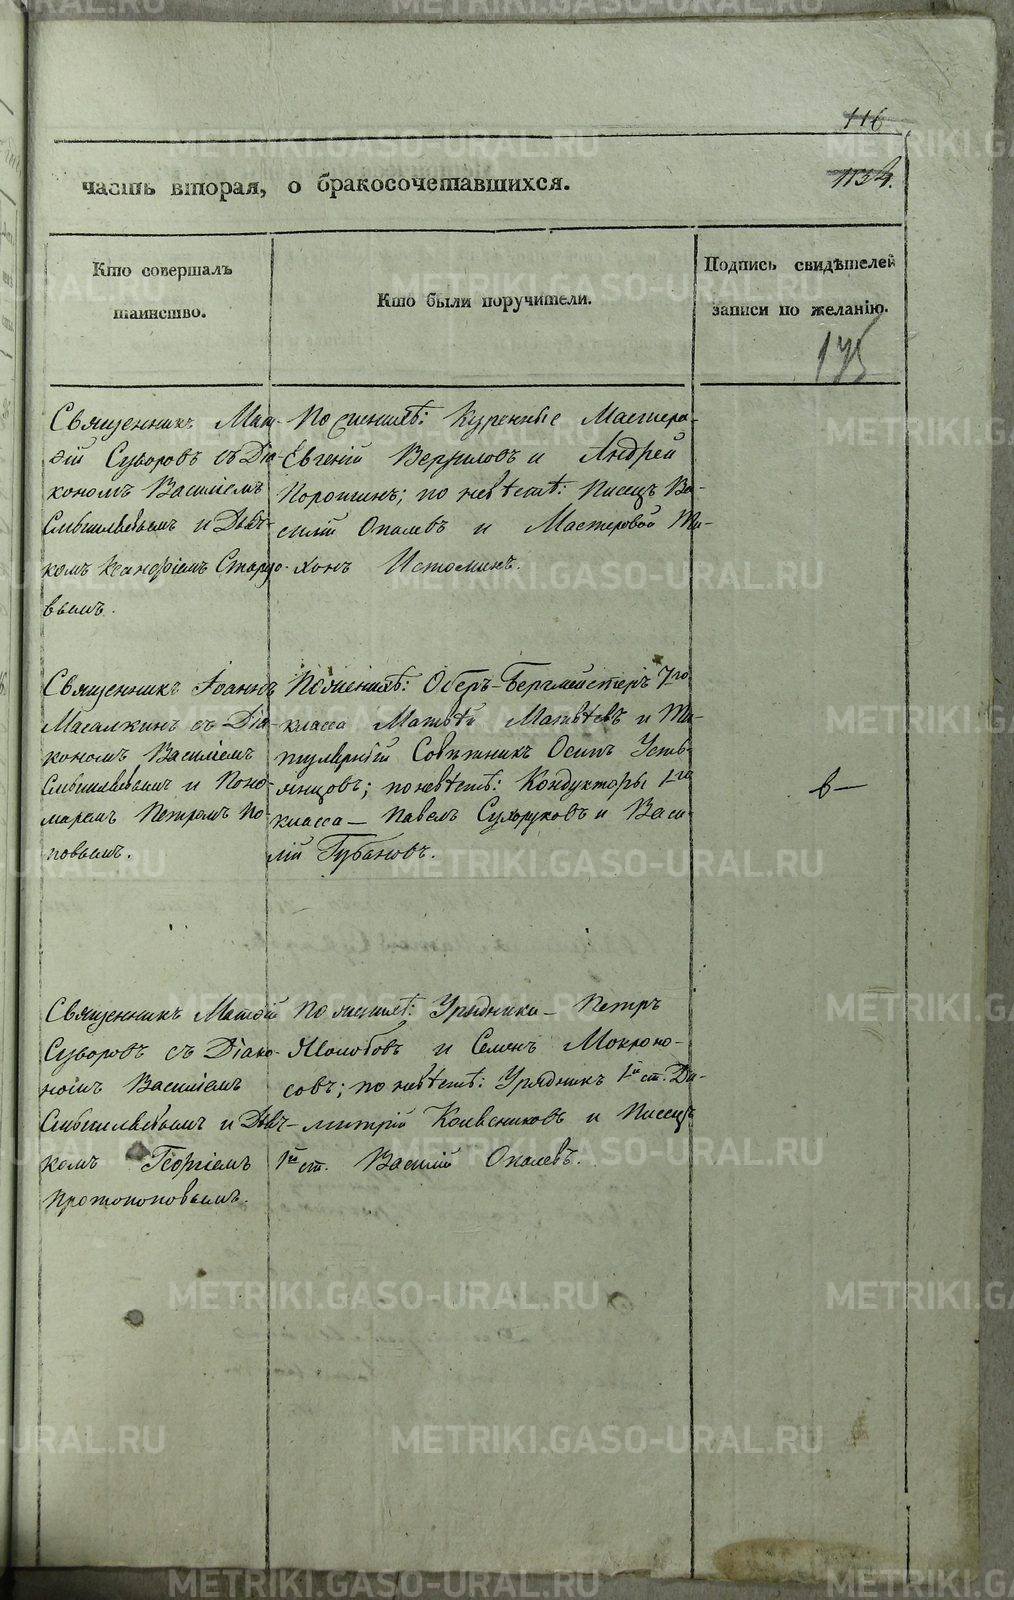 116
1134.
часть вторая, о бракосочетавшихся.
Кто совершалъ
таинство.
Кто были поручители.
Подпись свидѣтелей
записи по желанію.
175
Священникъ Мат-
ѳій Суворовъ съ Діа-
кономъ Василіемъ
и Дьяч-
комъ Ксенофонтомъ
вымъ.
По женихѣ: Куренные Мастера
Евгеній и Андрей
Порошинъ; по невѣстѣ: Писецъ Ва-
силій Опалевъ и Мастеровой Ти-
хонъ Истоминъ.
Священникъ Іоаннъ
Масалкинъ съ Діа-
кономъ Василіемъ
и Поно-
маремъ Петромъ По-
повымъ.
По женихѣ: Оберъ-Бергмейстеръ 7го
класса Матвѣй Матвѣевъ и Ти-
тулярный Совѣтникъ Осипъ Усть-
янцовъ; по невѣстѣ: Кондукторы 1го
класса – Павелъ Сухоруковъ и Васи-
лій Губановъ.
в –
Священникъ Матѳій
Суворовъ съ Діако-
номъ Василіемъ
и Дьяч-
комъ Георгіемъ
Протопоповымъ.
По женихѣ: Урядники – Петръ
и Семенъ Мокроно-
совъ; по невѣстѣ: Урядникъ 1й ст. Ди-
митрій и Писецъ
1й ст. Василій Опалевъ.
METRIKI.GASO-URAL.RU